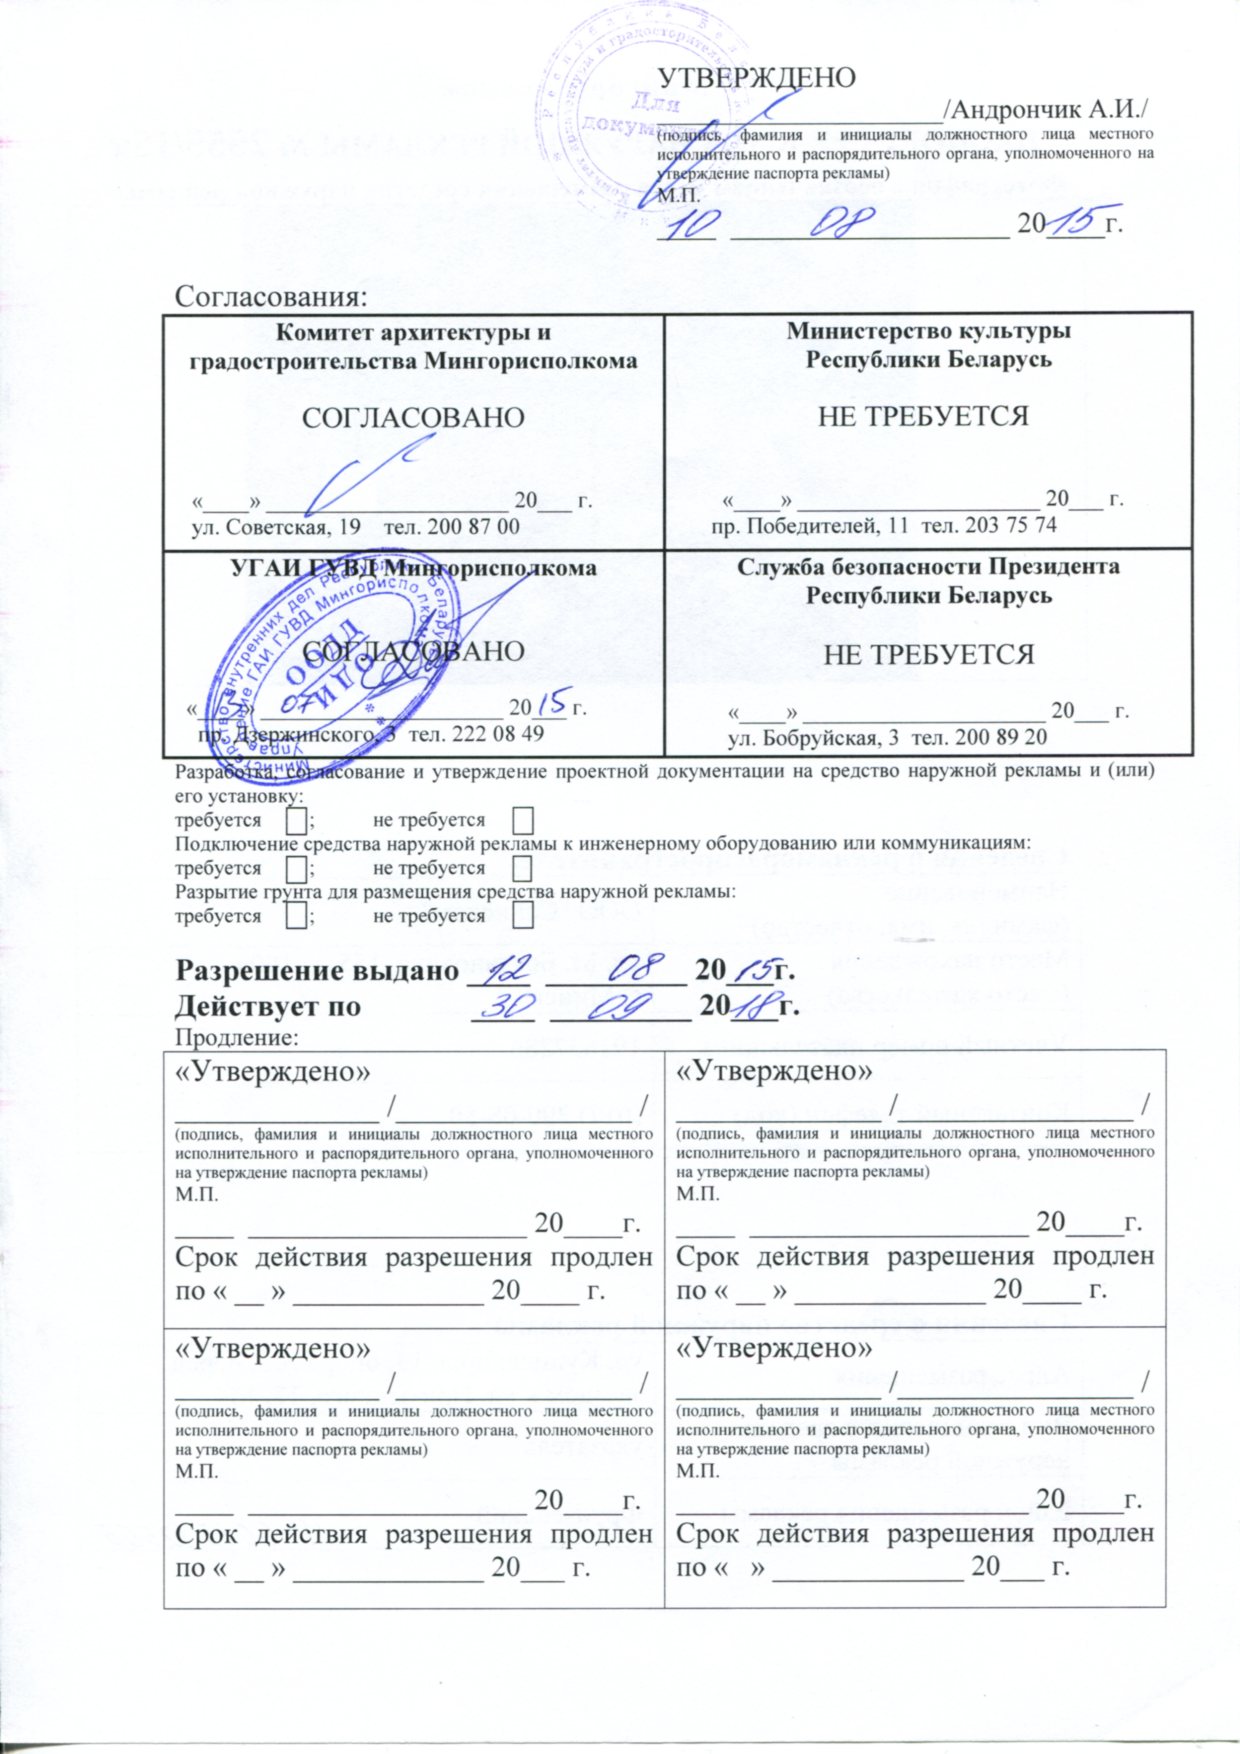 УТВЕРЖДЕНО
____________________/Андрончик А.И./
(подпись, фамилия и инициалы должностного лица местного
исполнительного и распорядительного органа, уполномоченного на
утверждение паспорта рекламы)
М.П.
10 08 2015г.
Для
документов
Согласования:
Комитет архитектуры и
градостроительства Мингорисполкома
СОГЛАСОВАНО
«____» ____________________ 20___ г.
ул. Советская, 19 тел. 200 87 00
Министерство культуры
Республики Беларусь
НЕ ТРЕБУЕТСЯ
«____» ____________________ 20___ г.
пр. Победителей, 11 тел. 203 75 74
УГАИ ГУВД Мингорисполкома
СОГЛАСОВАНО
« » 07 2015 г.
пр. Дзержинского, 3 тел. 222 08 49
Министерство внутренних дел Республики Беларусь
Управление ГАИ ГУВД Мингорисполкома
ООДД
И ДО
Служба безопасности Президента
Республики Беларусь
НЕ ТРЕБУЕТСЯ
«____» ____________________ 20___ г.
ул. Бобруйская, 3 тел. 200 89 20
Разработка, согласование и утверждение проектной документации на средство наружной рекламы и (или)
его установку:
требуется ; не требуется
Подключение средства наружной рекламы к инженерному оборудованию или коммуникациям:
требуется ; не требуется
Разрытие грунта для размещения средства наружной рекламы:
требуется ; не требуется
Разрешение выдано 12 08 2015г.
Действует по 30 09 2018г.
Продление:
«Утверждено»
______________ /________________ /
(подпись, фамилия и инициалы должностного лица местного
исполнительного и распорядительного органа, уполномоченного
на утверждение паспорта рекламы)
М.П.
____ ___________________ 20____г.
Срок действия разрешения продлен
по « __ » _____________ 20____ г.
«Утверждено»
______________ /________________ /
(подпись, фамилия и инициалы должностного лица местного
исполнительного и распорядительного органа, уполномоченного
на утверждение паспорта рекламы)
М.П.
____ ___________________ 20____г.
Срок действия разрешения продлен
по « __ » _____________ 20____ г.
«Утверждено»
______________ /________________ /
(подпись, фамилия и инициалы должностного лица местного
исполнительного и распорядительного органа, уполномоченного
на утверждение паспорта рекламы)
М.П.
____ ___________________ 20____г.
Срок действия разрешения продлен
по « __ » _____________ 20___ г.
«Утверждено»
______________ /________________ /
(подпись, фамилия и инициалы должностного лица местного
исполнительного и распорядительного органа, уполномоченного
на утверждение паспорта рекламы)
М.П.
____ ___________________ 20____г.
Срок действия разрешения продлен
по « » _____________ 20___ г.